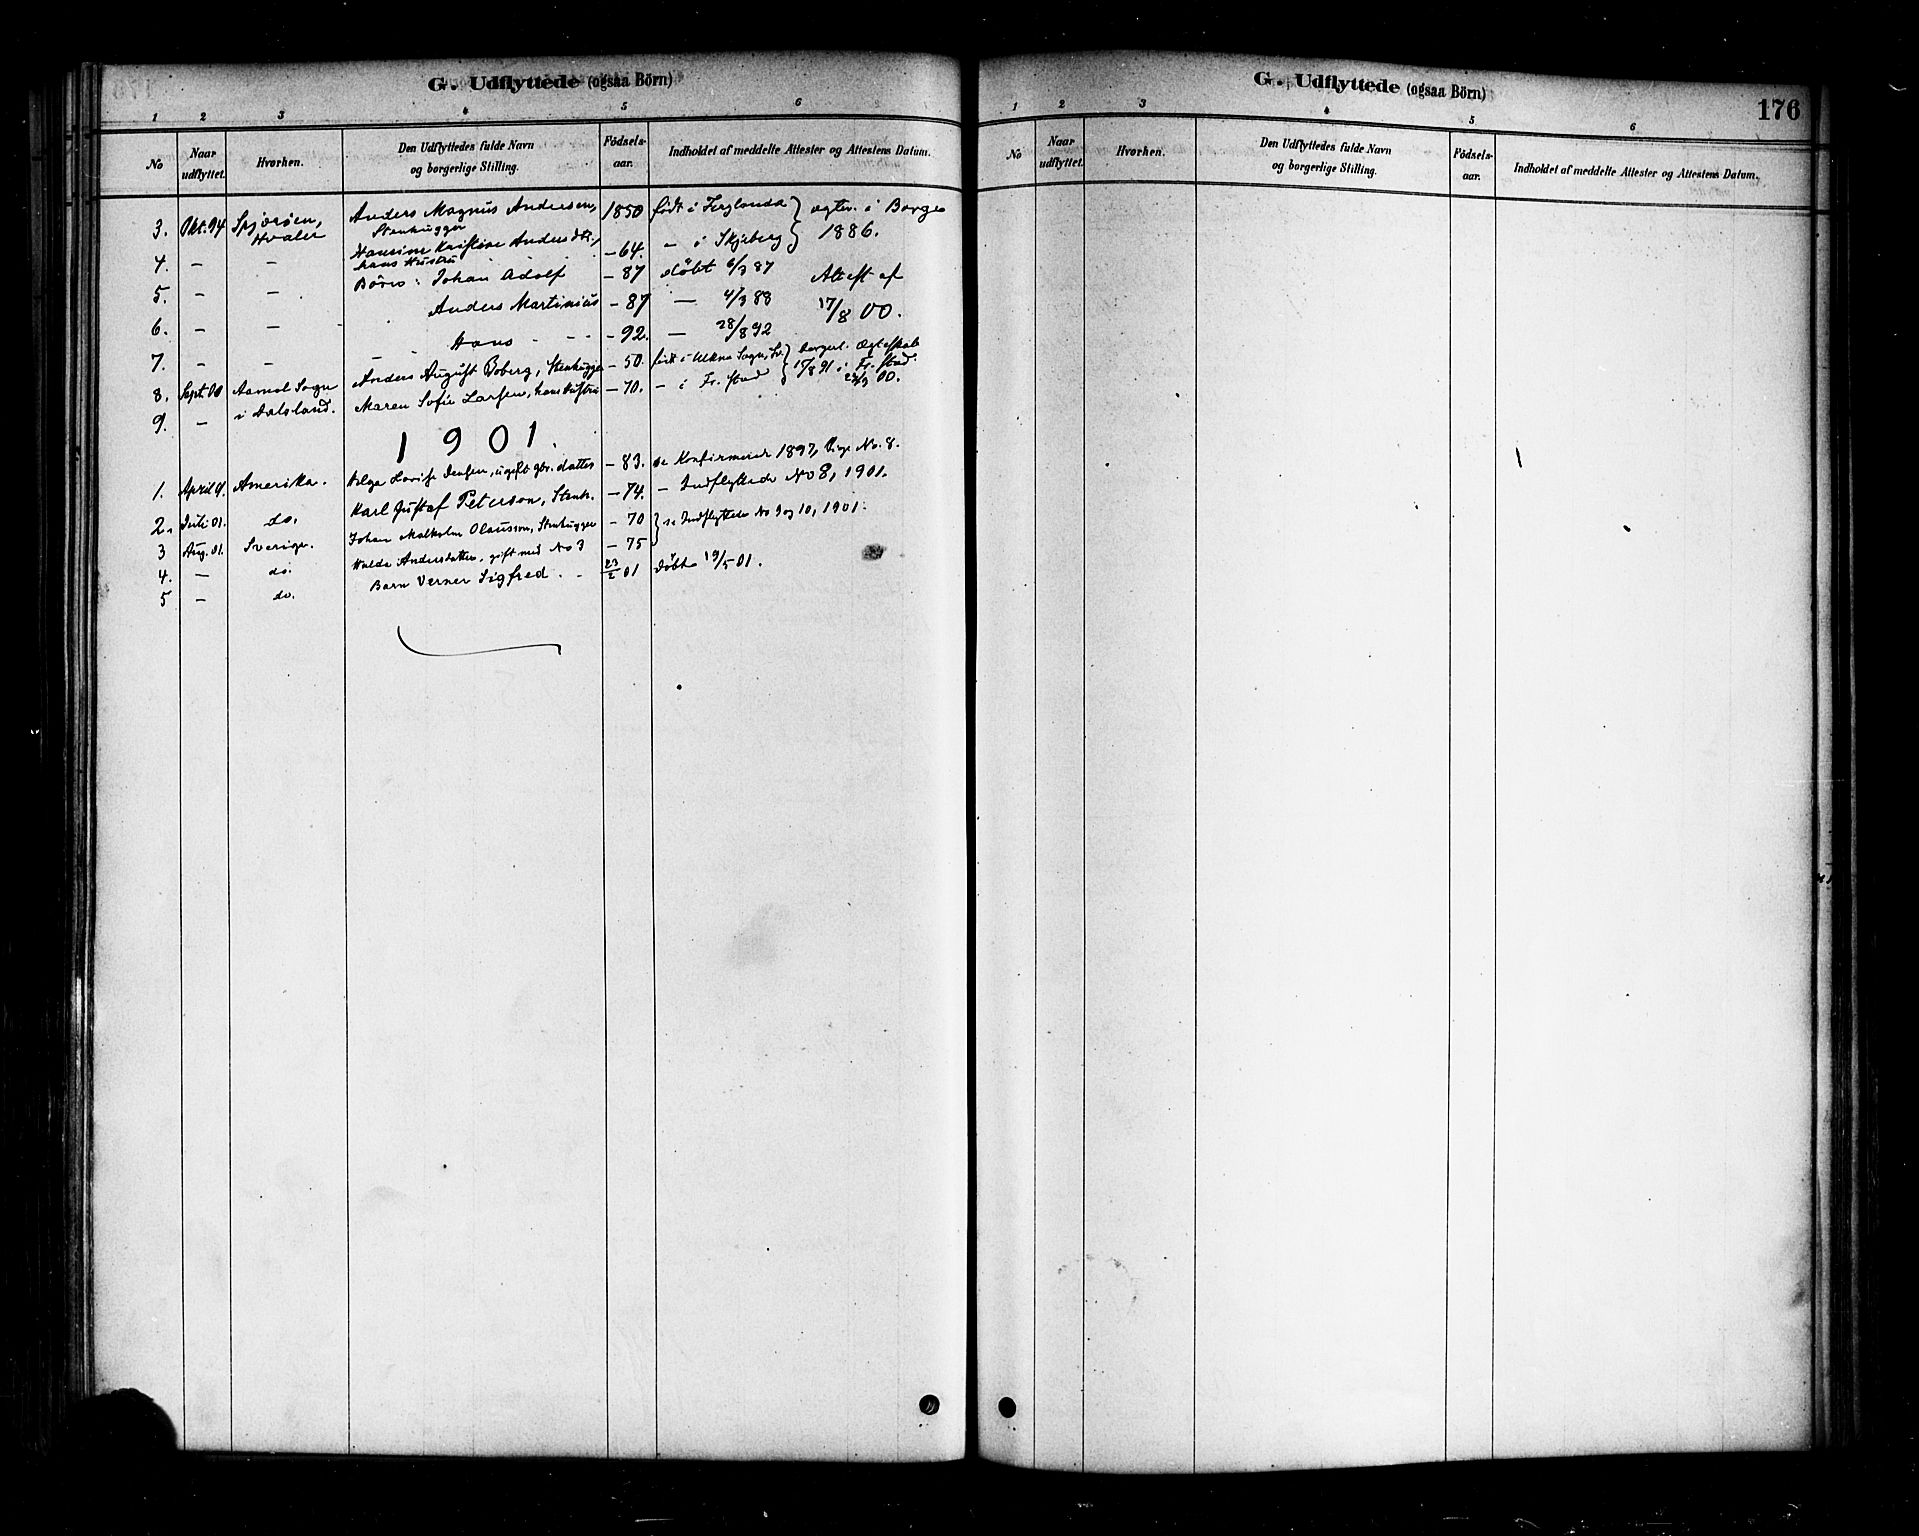 G. Udflyttede (ogsaa Börn)
1 2 3 4 5 6
No
Naar udflyttet.
Hvorhen.
Den Udflyttedes fulde Navn og borgerlige Stilling.
Födsels-aar.
Indholdet af meddelte Attester og Attestens Datum.
3. Okt. 94 Spjærøen, Hvaler Anders Magnus Andersen, Stenhugger 1850 født i Ferglanda } ægtev. i Borge 1886.
4. – – Hansine Kristine Andersdtr., hans Hustru – 64. – i Skjeberg
5. – – Börn: Johan Adolf – 87 döbt 6/3 87 Attest af
6. – – Anders Martinius – 87 – 4/3 88 17/8 00.
7. – – Hans – 92. – 28/8 92
8. Sept. 00 Aamol Sogn Anders August Boberg, Stenhugger – 50. født i Sogn, Sv. } borgerl. Ægteskab
9. – i Dalsland. Maren Sofie Larsen, hans Hustru – 70. – i Fr.stad 15/8 91 i Fr.stad. 00.
1901.
1. April 01. Amerika. Helga Lovise Jensen, ugift gbr. datter – 83. se Konfirmerede 1897, Pige No. 8.
2. Juli 01. do. Karl Gustaf Peterson, Stenh. – 74. – Indflyttede No 8, 1901.
3 Aug. 01. Sverige. Johan Malkolm Olausson, Stenhugger – 70 } se Indflyttede No 9 og 10, 1901.
4. – do. Hulda Andersdatter, gift med No 3 – 75
5 – do. Barn Verner Sigfred. 23/2 01 Döbt 19/5 01.
G. Udflyttede (ogsaa Börn)
176
1 2 3 4 5 6
No
Naar udflyttet.
Hvorhen.
Den Udflyttedes fulde Navn og borgerlige Stilling.
Födsels-aar.
Indholdet af meddelte Attester og Attestens Datum.